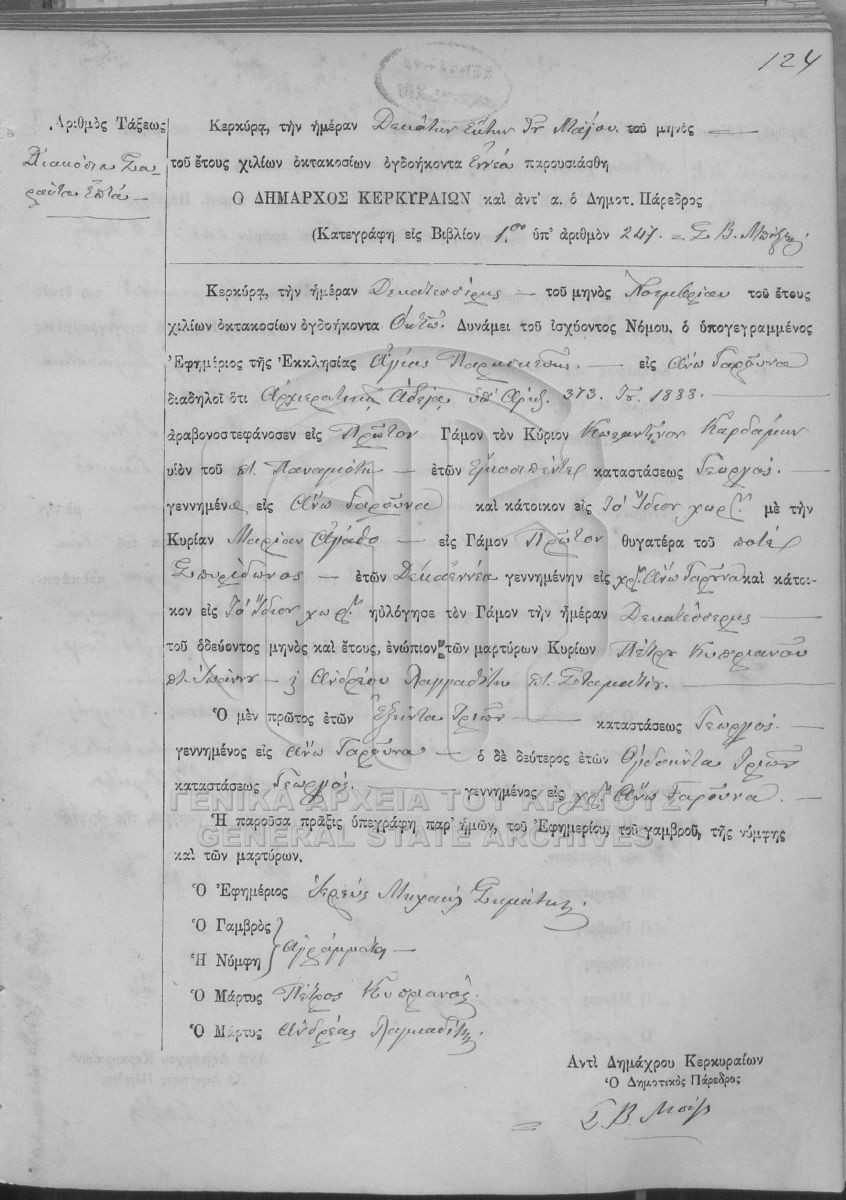 124
Ἀριθμὸς Τάξεως
Διακόσια Σα-
ράντα Ἑπτά —
Κερκύρᾳ, τὴν ἡμέραν Δεκάτην Ἕκτην Μαΐου τοῦ μηνὸς —
τοῦ ἔτους χιλίων ὀκτακοσίων ὀγδοήκοντα Ἐννέα παρουσιάσθη
Ὁ ΔΗΜΑΡΧΟΣ ΚΕΡΚΥΡΑΙΩΝ καὶ ἀντ' α. ὁ Δημοτ. Πάρεδρος
(Κατεγράφη εἰς Βιβλίον 1ον ὑπ' ἀριθμὸν 247. Σ. Β.
Κερκύρᾳ, τὴν ἡμέραν Δεκατέσσερης — τοῦ μηνὸς Νοεμβρίου τοῦ ἔτους
χιλίων ὀκτακοσίων ὀγδοήκοντα Ὀκτώ. Δυνάμει τοῦ ἰσχύοντος Νόμου, ὁ ὑπογεγραμμένος
Ἐφημέριος τῆς Ἐκκλησίας Ἁγίας Παρασκευῆς. — εἰς Ἄνω Γαροῦνα
διαδηλοῖ ὅτι Ἀρχιερατικῇ Ἀδείᾳ ὑπ' Ἀριθ. 373. 1888.
ἀραβονοστεφάνοσεν εἰς Πρῶτον Γάμον τὸν Κύριον Κωσταντῖνον Καρδάμην
υἱὸν τοῦ π. Παναγιώτη — ἐτῶν Εἴκοσιπέντε καταστάσεως Γεωργός. —
γεννημένο εἰς Ἄνω Γαροῦνα καὶ κάτοικον εἰς Τὸ Ἴδιον χωρ. μὲ τὴν
Κυρίαν Μαρίαν Ἀγάθο — εἰς Γάμον Πρῶτον θυγατέρα τοῦ ποτέ
Σπυρίδωνος — ἐτῶν Δεκαεννέα γεννημένην εἰς χρ. Ἄνω Γαροῦνα καὶ κάτοι-
κον εἰς Τὸ Ἴδιον χωρ. ηὐλόγησε τὸν Γάμον τὴν ἡμέραν Δεκατέσσερης —
τοῦ ὁδεύοντος μηνὸς καὶ ἔτους, ἐνώπιον τῶν μαρτύρων Κυρίων Πέτρου Κυπριανοῦ
π. Ἰωάννου — Ἀνδρέου π. Σταματίου. —
Ὁ μὲν πρῶτος ἐτῶν Ἑξῆντα Τριῶν — καταστάσεως Γεωργός. —
γεννημένος εἰς Ἄνω Γαροῦνα — ὁ δὲ δεύτερος ἐτῶν Ὀγδοῆντα Τριῶν
καταστάσεως Γεωργός. — γεννημένος εἰς χρ. Ἄνω Γαροῦνα. —
ΓΕΝΙΚΑ ΑΡΧΕΙΑ ΤΟΥ ΚΡΑΤΟΥΣ
GENERAL STATE ARCHIVES
Ἡ παροῦσα πρᾶξις ὑπεγράφη παρ' ἡμῶν, τοῦ Ἐφημερίου, τοῦ γαμβροῦ, τῆς νύμφης
καὶ τῶν μαρτύρων.
Ὁ Ἐφημέριος Ἱερεὺς Μιχαὴλ
Ὁ Γαμβρὸς
Ἡ Νύμφη } Ἀγράμματοι —
Ὁ Μάρτυς Πέτρος Κυπριανός.
Ὁ Μάρτυς Ἀνδρέας
Ἀντὶ Δημάχρου Κερκυραίων
Ὁ Δημοτικὸς Πάρεδρος
Σ. Β.